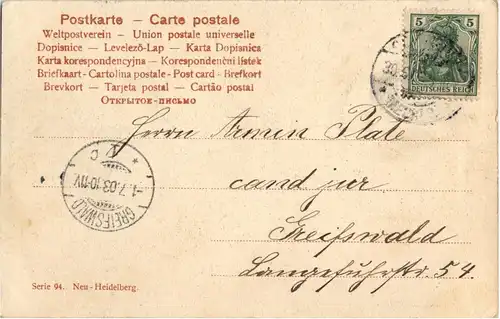 Postkarte – Carte postale
Weltpostverein – Union postale universelle
Dopisnice – Levelező-Lap – Karta Dopisnica
Karta korespondencyjna – Korespondenční lístek
Briefkaart – Cartolina postale - Post card - Brefkort
Brevkort – Tarjeta postal – Cartão postal
Открытое-письмо
5 5
DEUTSCHES REICH
Herrn Armin Plate
cand jur
Greifswald
Langefuhrstr 54.
GREIFSWALD
-1.7.03.10-11V.
* c
Serie 94. Neu-Heidelberg.